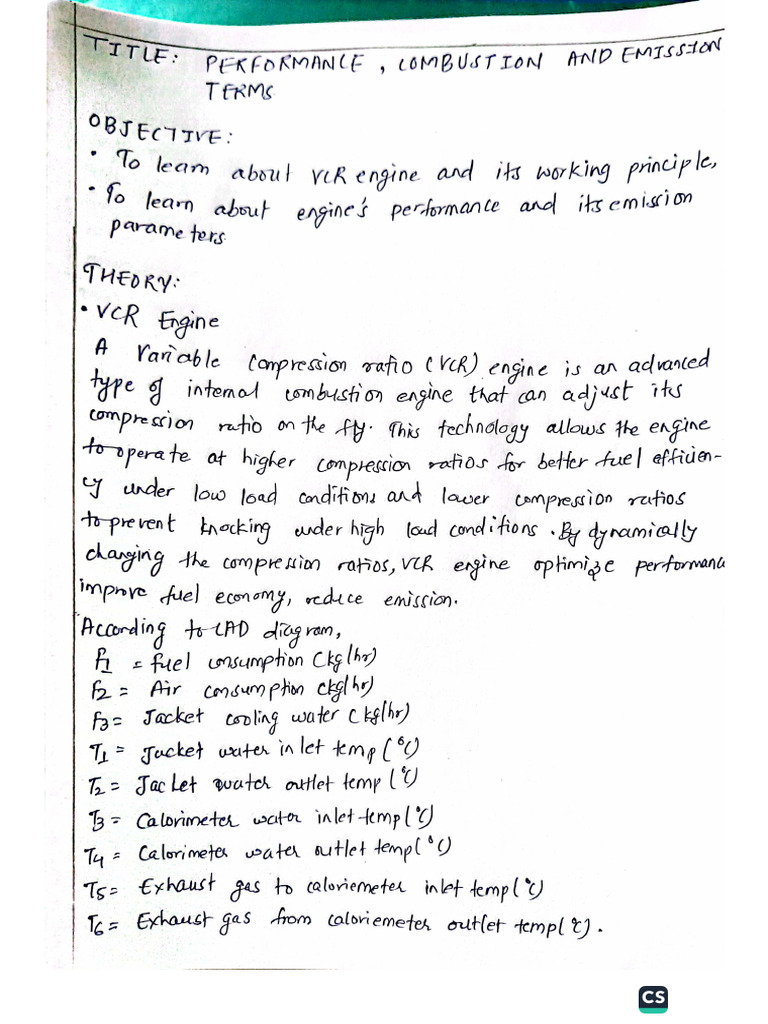 TITLE: PERFORMANCE, COMBUSTION AND EMISSION
TERMS
OBJECTIVE:
• To learn about VCR engine and its working principle,
• To learn about engine's performance and its emission
parameters.
THEORY:
• VCR Engine
A Variable Compression ratio (VCR) engine is an advanced
type of internal combustion engine that can adjust its
compression ratio on the fly. This technology allows the engine
to operate at higher compression ratios for better fuel efficien-
cy under low load conditions and lower compression ratios
to prevent knocking under high load conditions. By dynamically
changing the compression ratios, VCR engine optimize performance
improve fuel economy, reduce emission.
According to CAD diagram,
F1 = fuel consumption (kg/hr)
F2 = Air consumption (kg/hr)
F3 = Jacket cooling water (kg/hr)
T1 = Jacket water inlet temp (°C)
T2 = Jacket water outlet temp (°C)
T3 = Calorimeter water inlet temp (°C)
T4 = Calorimeter water outlet temp (°C)
T5 = Exhaust gas to caloriemeter inlet temp (°C)
T6 = Exhaust gas from caloriemeter outlet temp (°C).
CS